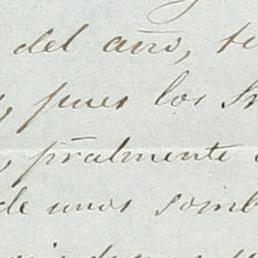 del año, te
, pues los Sr
, p̃ralmente
de unos somb